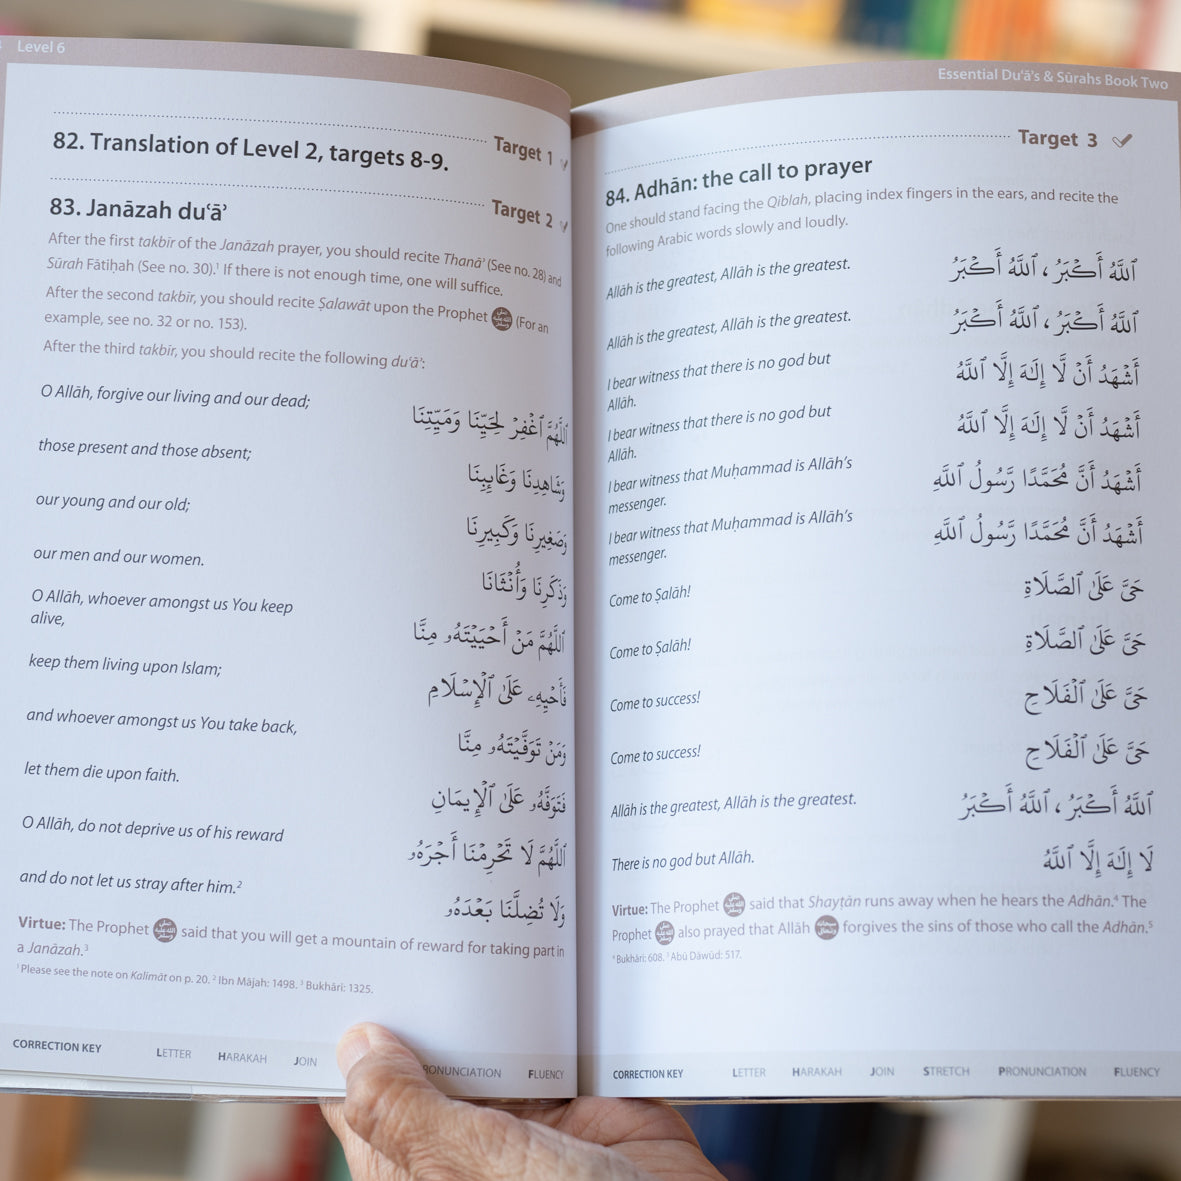 Level 6
82. Translation of Level 2, targets 8-9.
Target 1
83. Janāzah du‘ā’
Target 2
After the first takbīr of the Janāzah prayer, you should recite Thanā’ (See no. 28) and
Sūrah Fātiḥah (See no. 30).¹ If there is not enough time, one will suffice.
After the second takbīr, you should recite Ṣalawāt upon the Prophet ﷺ (For an
example, see no. 32 or no. 153).
After the third takbīr, you should recite the following du‘ā’:
O Allāh, forgive our living and our dead;
اَللّٰهُمَّ ٱغْفِرْ لِحَيِّنَا وَمَيِّتِنَا
those present and those absent;
وَشَاهِدِنَا وَغَائِبِنَا
our young and our old;
وَصَغِيرِنَا وَكَبِيرِنَا
our men and our women.
وَذَكَرِنَا وَأُنْثَانَا
O Allāh, whoever amongst us You keep
alive,
اَللّٰهُمَّ مَنْ أَحْيَيْتَهُۥ مِنَّا
keep them living upon Islam;
فَأَحْيِهِۦ عَلَى ٱلْإِسْلَامِ
and whoever amongst us You take back,
وَمَنْ تَوَفَّيْتَهُۥ مِنَّا
let them die upon faith.
فَتَوَفَّهُۥ عَلَى ٱلْإِيمَانِ
O Allāh, do not deprive us of his reward
اَللّٰهُمَّ لَا تَحْرِمْنَا أَجْرَهُۥ
and do not let us stray after him.²
وَلَا تُضِلَّنَا بَعْدَهُۥ
Virtue: The Prophet ﷺ said that you will get a mountain of reward for taking part in
a Janāzah.³
¹ Please see the note on Kalimāt on p. 20. ² Ibn Mājah: 1498. ³ Bukhārī: 1325.
CORRECTION KEY LETTER HARAKAH JOIN RONUNCIATION FLUENCY
Essential Du‘ā’s & Sūrahs Book Two
Target 3
84. Adhān: the call to prayer
One should stand facing the Qiblah, placing index fingers in the ears, and recite the
following Arabic words slowly and loudly.
Allāh is the greatest, Allāh is the greatest.
اَللّٰهُ أَكْبَرُ ، اَللّٰهُ أَكْبَرُ
Allāh is the greatest, Allāh is the greatest.
اَللّٰهُ أَكْبَرُ ، اَللّٰهُ أَكْبَرُ
I bear witness that there is no god but
Allāh.
أَشْهَدُ أَنْ لَّا إِلٰهَ إِلَّا ٱللّٰهُ
I bear witness that there is no god but
Allāh.
أَشْهَدُ أَنْ لَّا إِلٰهَ إِلَّا ٱللّٰهُ
I bear witness that Muḥammad is Allāh’s
messenger.
أَشْهَدُ أَنَّ مُحَمَّدًا رَّسُولُ ٱللّٰهِ
I bear witness that Muḥammad is Allāh’s
messenger.
أَشْهَدُ أَنَّ مُحَمَّدًا رَّسُولُ ٱللّٰهِ
Come to Ṣalāh!
حَيَّ عَلَى ٱلصَّلَاةِ
Come to Ṣalāh!
حَيَّ عَلَى ٱلصَّلَاةِ
Come to success!
حَيَّ عَلَى ٱلْفَلَاحِ
Come to success!
حَيَّ عَلَى ٱلْفَلَاحِ
Allāh is the greatest, Allāh is the greatest.
اَللّٰهُ أَكْبَرُ ، اَللّٰهُ أَكْبَرُ
There is no god but Allāh.
لَا إِلٰهَ إِلَّا ٱللّٰهُ
Virtue: The Prophet ﷺ said that Shayṭān runs away when he hears the Adhān.⁴ The
Prophet ﷺ also prayed that Allāh forgives the sins of those who call the Adhān.⁵
⁴ Bukhārī: 608. ⁵ Abū Dāwūd: 517.
CORRECTION KEY LETTER HARAKAH JOIN STRETCH PRONUNCIATION FLUENCY